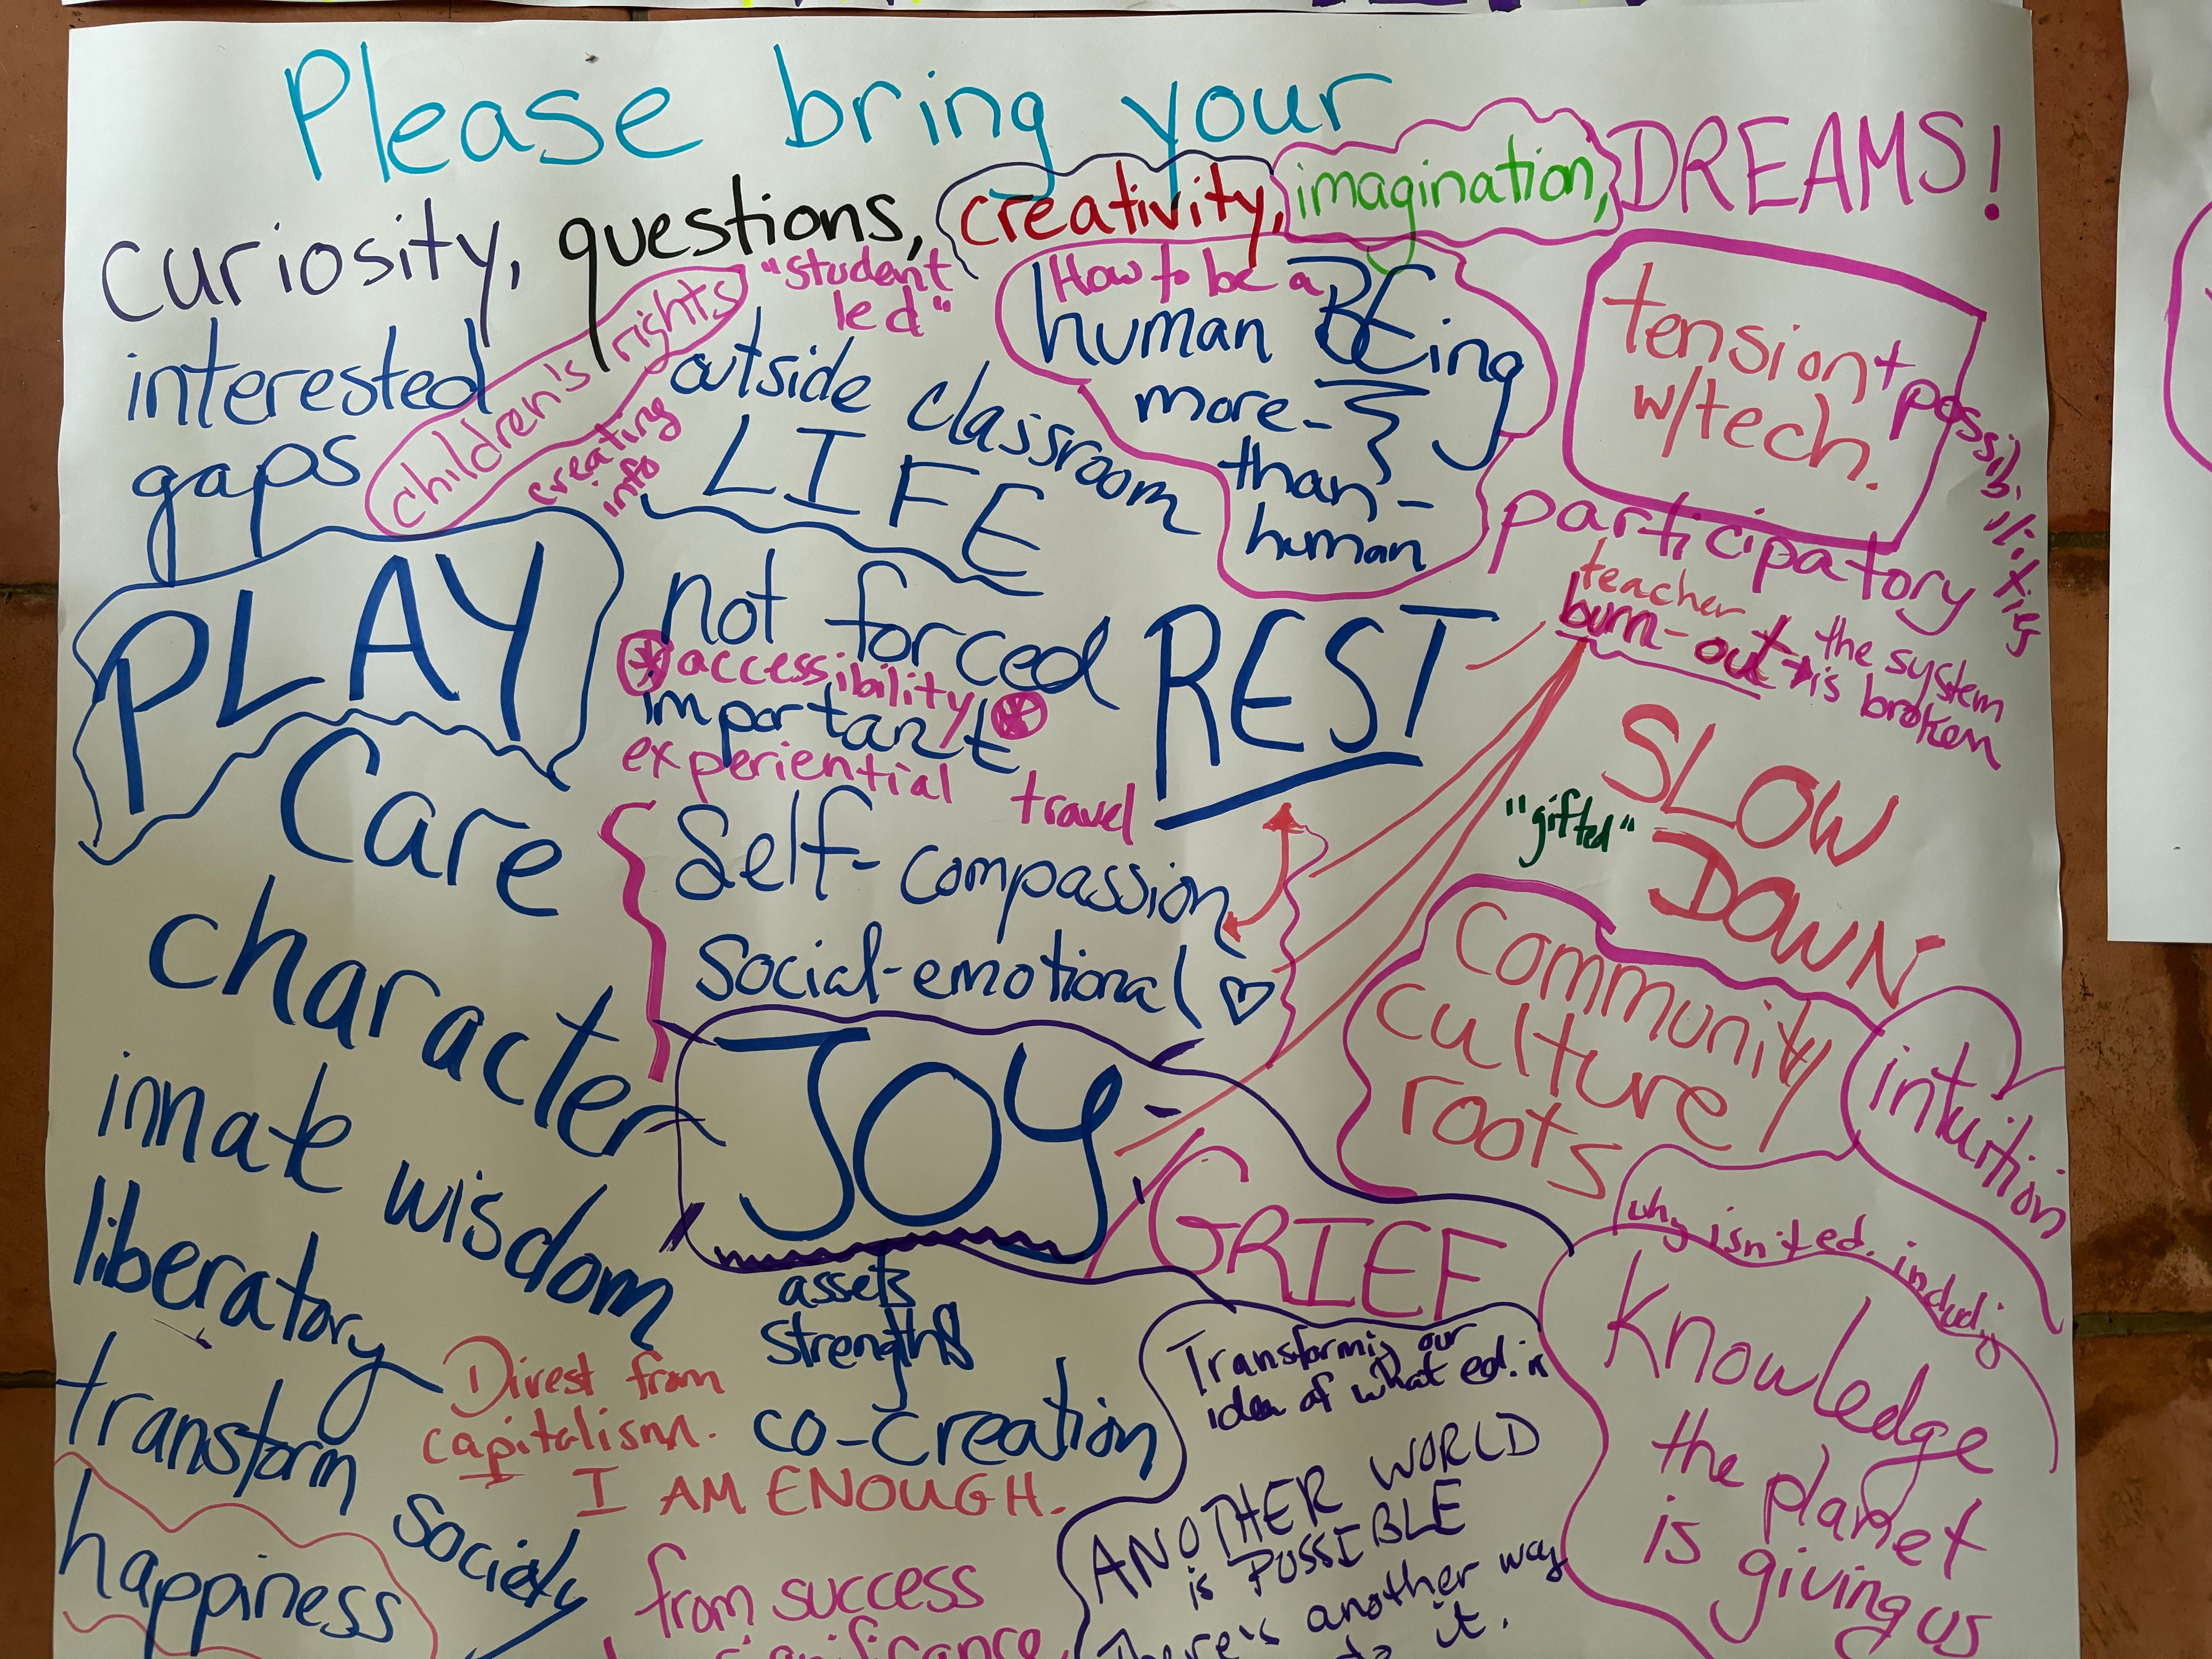 Please bring your
curiosity, questions, creativity, imagination, DREAMS!
interested
gaps
children's rights
creating
info
"student
led"
outside classroom
LIFE
How to be a
human BEing
more-
than-
human
tension
w/tech.
+ possibilities
participatory
PLAY
not forced
accessibility
important
experiential
travel
REST
teacher
burn-out → the system
is broken
SLOW
DOWN
"gifted"
Care
character
Self-compassion
Social-emotional
JOY
Community/
culture
roots
intuition
innate wisdom
liberatory
transform
society
happiness
assets
strengths
GRIEF
why isn't ed. including
Knowledge
the planet
is giving us
Divest from
capitalism.
I AM ENOUGH.
co-creation
Transformig our
idea of what ed. is
ANOTHER WORLD
is POSSIBLE
There's another way
it.
from success
significance